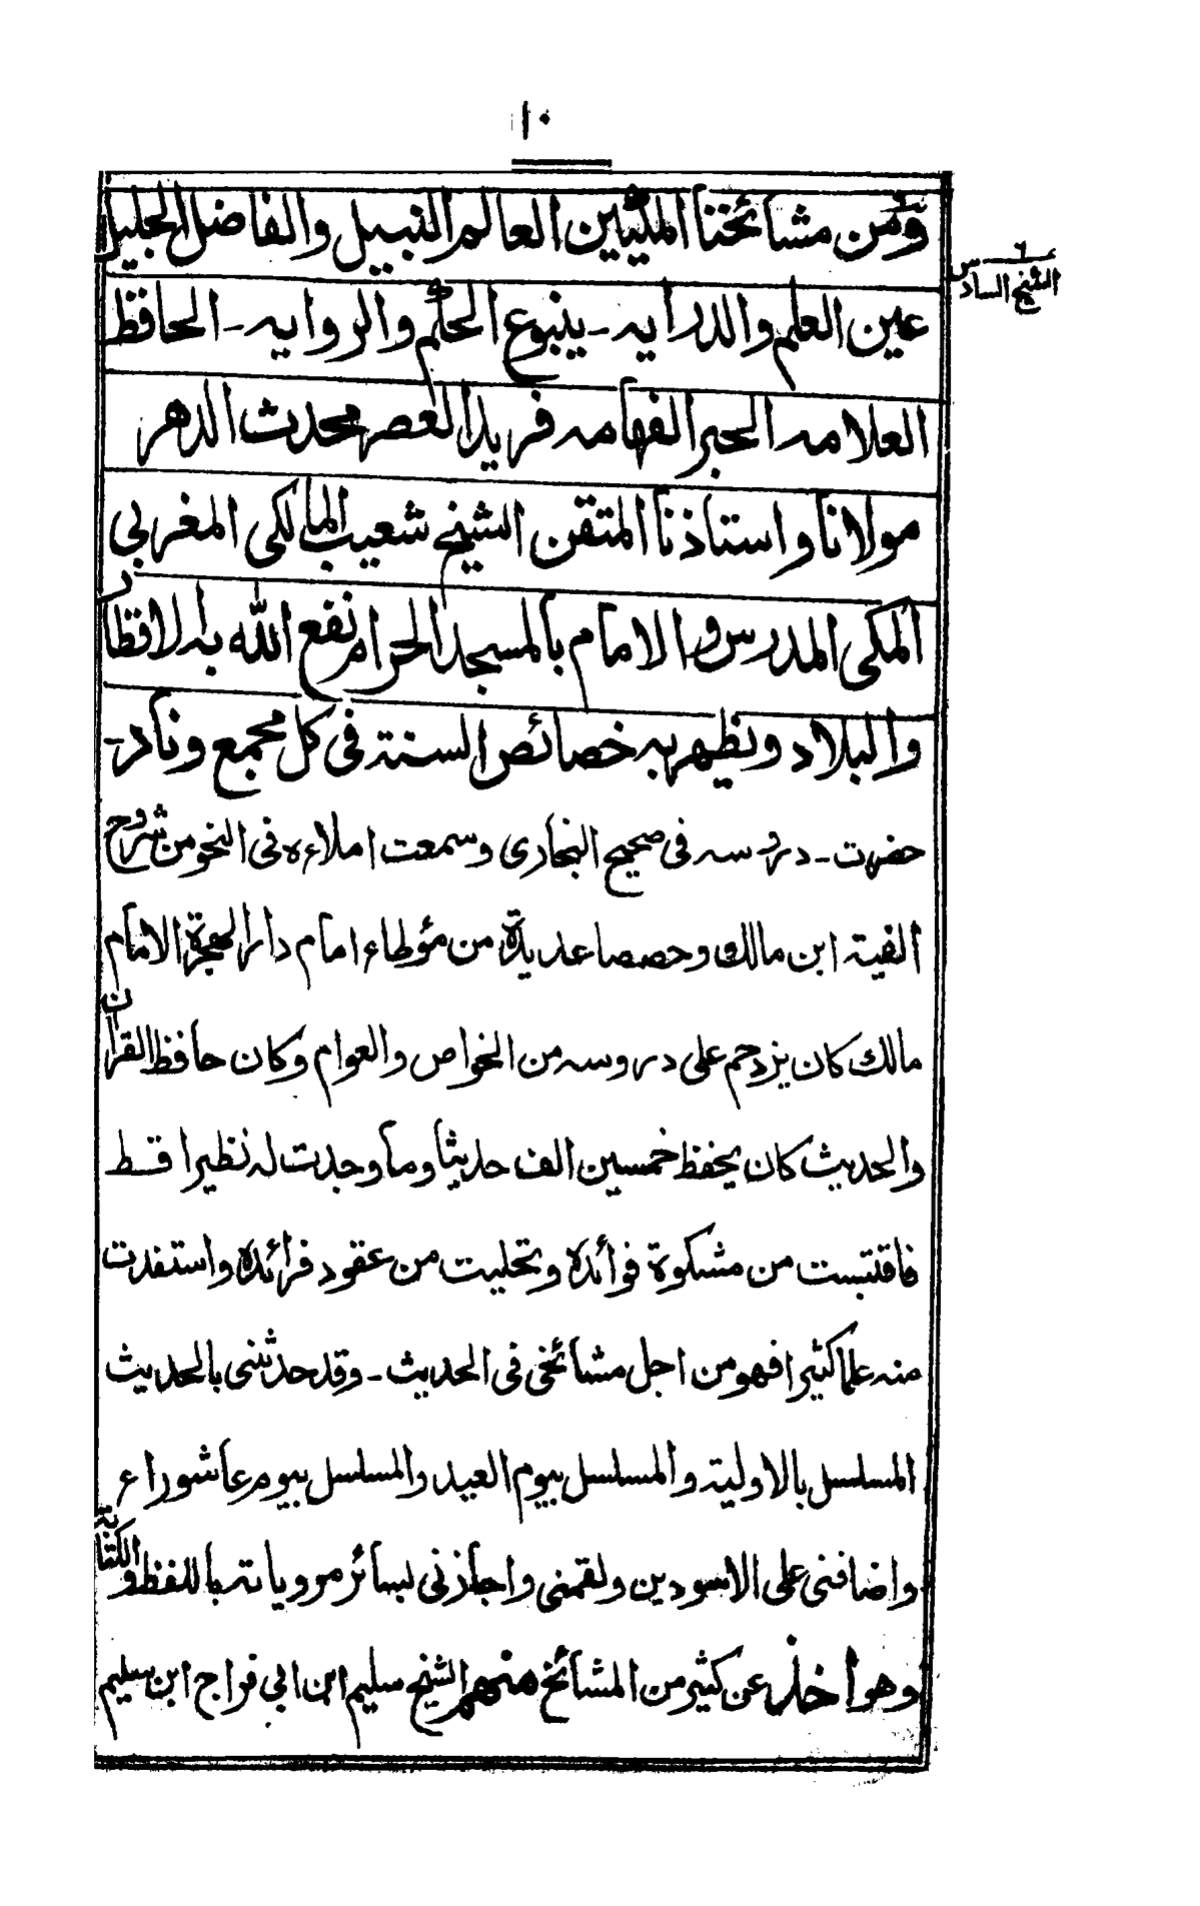 ١٠
ومن مشائخنا المكيين العالم النبيل والفاضل الجليل
الشيخ السادس
٦
عين العلم والدرايه - ينبوع الحكم والروايه - الحافظ
العلامه الحبر الفهامه فريد العصر محدث الدهر
مولانا واستاذنا المتقن الشيخ شعيب المالكى المغربي
المكى المدرس والامام بالمسجد الحرام نفع الله به الاقطار
والبلاد ونظهر به خصائص السنة فى كل مجمع وناد -
حضرت - دروسه فى صحيح البخارى وسمعت املاءه فى النحو من شروح
الفية ابن مالك وحصصا عديدة من مؤطاء امام دار الهجرة الامام
مالك كان يزدحم على دروسه من الخواص والعوام وكان حافظ القران
والحديث كان يحفظ خمسين الف حديثا وما وجدت له نظيرا قط
فاقتبست من مشكوة فوائده وتحليت من عقود فرائده واستفدت
منه علما كثيرا فهو من اجل مشائخى فى الحديث - وقد حدثنى بالحديث
المسلسل بالاولية والمسلسل بيوم العيد والمسلسل بيوم عاشوراء
واضافنى على الاسودين ولقمنى واجازنى لسائر مروياته باللفظ والكتابة
وهو اخذ عن كثير من المشائخ منهم الشيخ سليم ابن ابي فراج ابن سليم